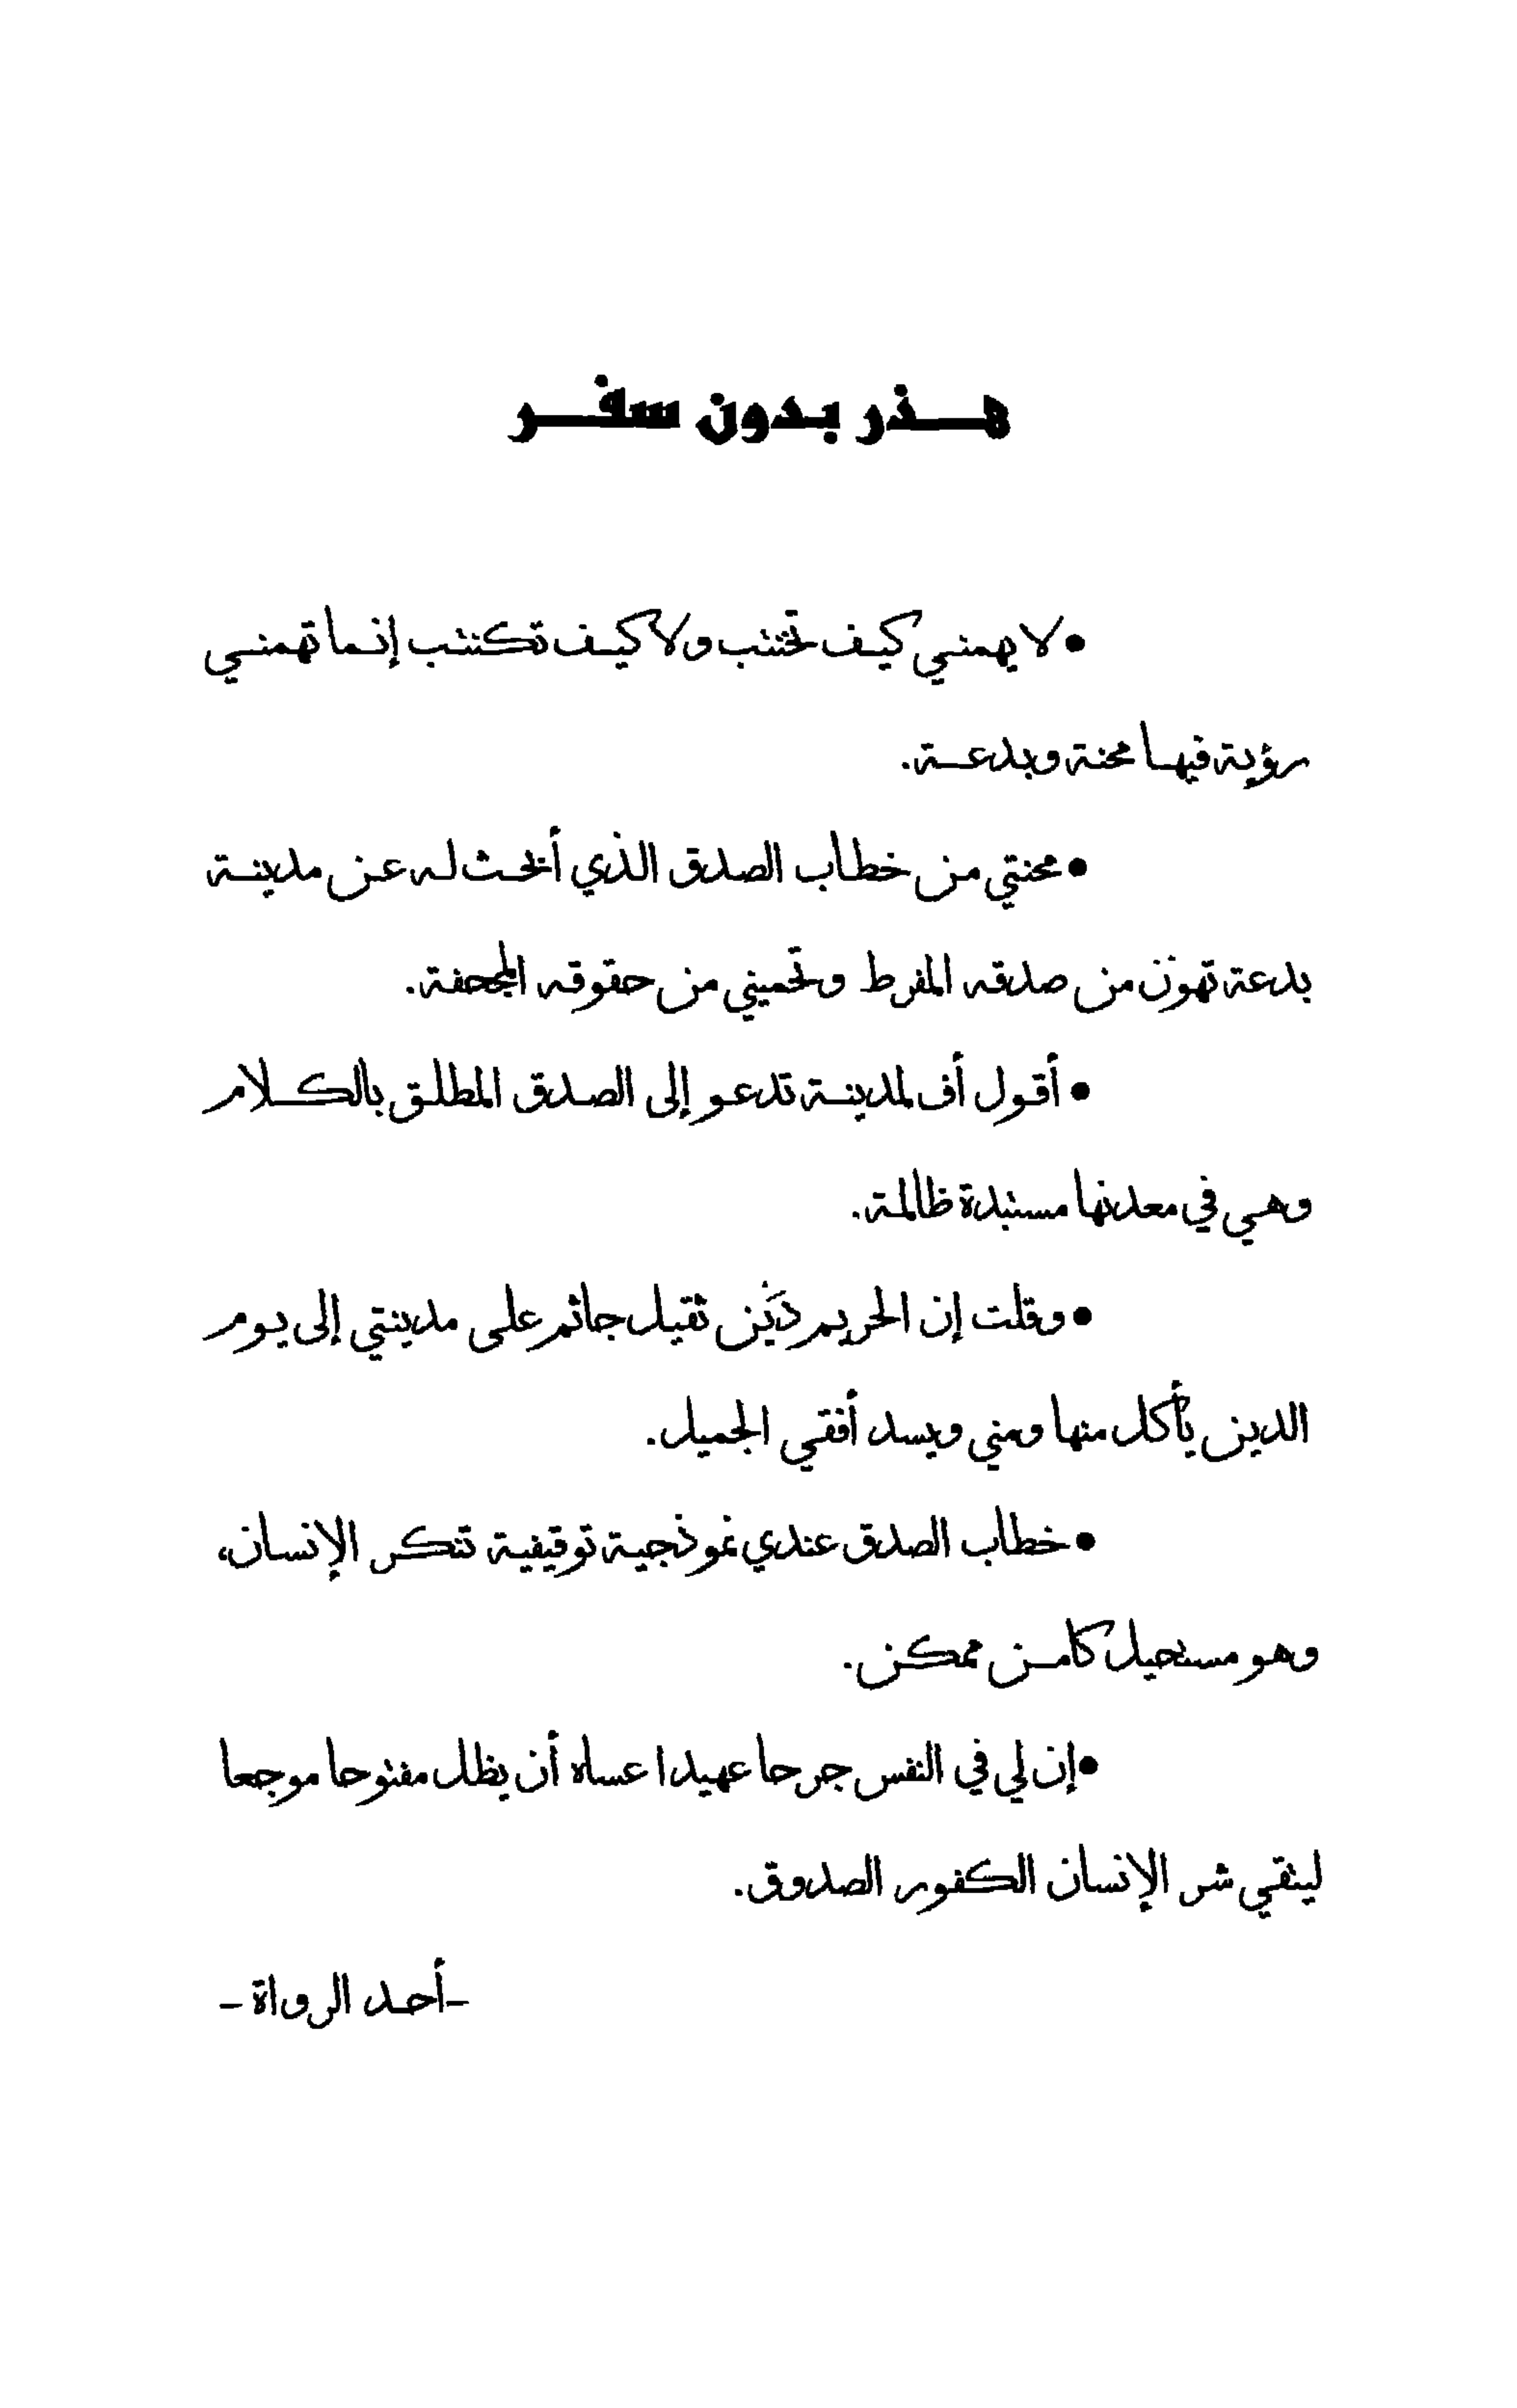 هذر بدون سفر
• لا يهمني كيف تختتب ولا كيف تكتتب إنما تهمني
رؤية فيها محنة وبدعة.
• محنتي من خطاب الصدق الذي أبحث له عن مدينة
بدعة تهوّن من صدقه المفرط وتحميني من حقوقه المجحفة.
• أقول أف لمدينة تدعو إلى الصدق المطلق بالكلام
وهي في معدنها مستبدة ظالمة.
• وقلت إن الحريم دَيْن ثقيل جاثم على مدينتي إلى يوم
الدين يأكل منها ومني ويسد أفقي الجميل.
• خطاب الصدق عندي نموذجية توقيفية تنكر الإنسان،
وهو مستحيل كامن ممكن.
• إن لي في النفس جرحا عهيدا عساه أن يظل مفتوحا موجعا
ليتقي شر الإنسان الكفور الصدوق.
- أحد الرواة -